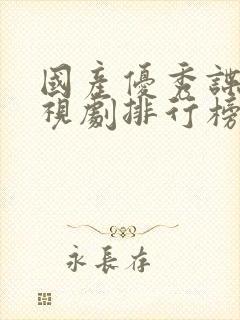 國産優秀諜
視劇排行榜
永長存